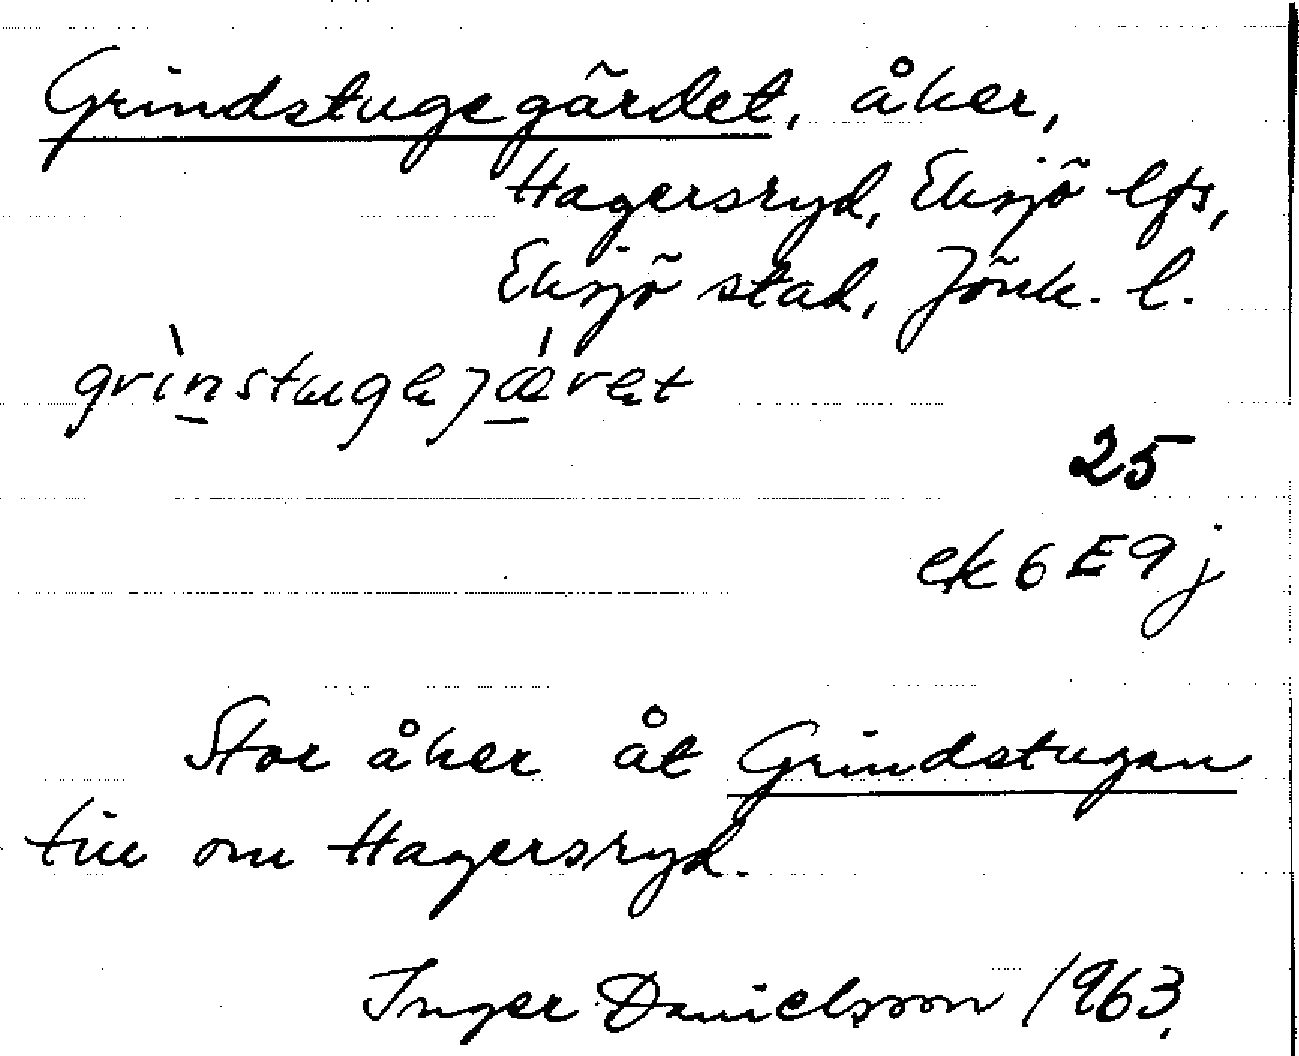 Grindstugegärdet, åker,
Hagersryd, Eksjö lfs,
Eksjö stad, Jönk. l.
grìnstugejǽret
25
ek 6 E 9 j
Stor åker åt Grindstugan
till om Hagersryd.
Inger Danielsson 1963.